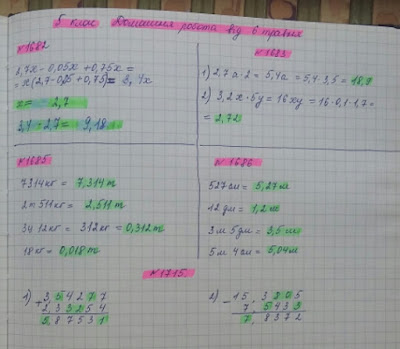 5 клас Домашня робота від 6 травня
№1682
2,7x - 0,05x + 0,75x =
= x(2,7 - 0,05 + 0,75) = 3,4x
x = 2,7
3,4 · 2,7 = 9,18
№1683
1) 2,7a · 2 = 5,4a = 5,4 · 3,5 = 18,9
2) 3,2x · 5y = 16xy = 16 · 0,1 · 1,7 =
= 2,72
№1685
7314кг = 7,314т
2т 511кг = 2,511т
3ц 12кг = 312кг = 0,312т
18кг = 0,018т
№1686
527см = 5,27м
12дм = 1,2м
3м 5дм = 3,5м
5м 4см = 5,04м
№1715
1) 3,54277
+ 2,33254
5,87531
2) 15,3805
- 7,5433
7,8372